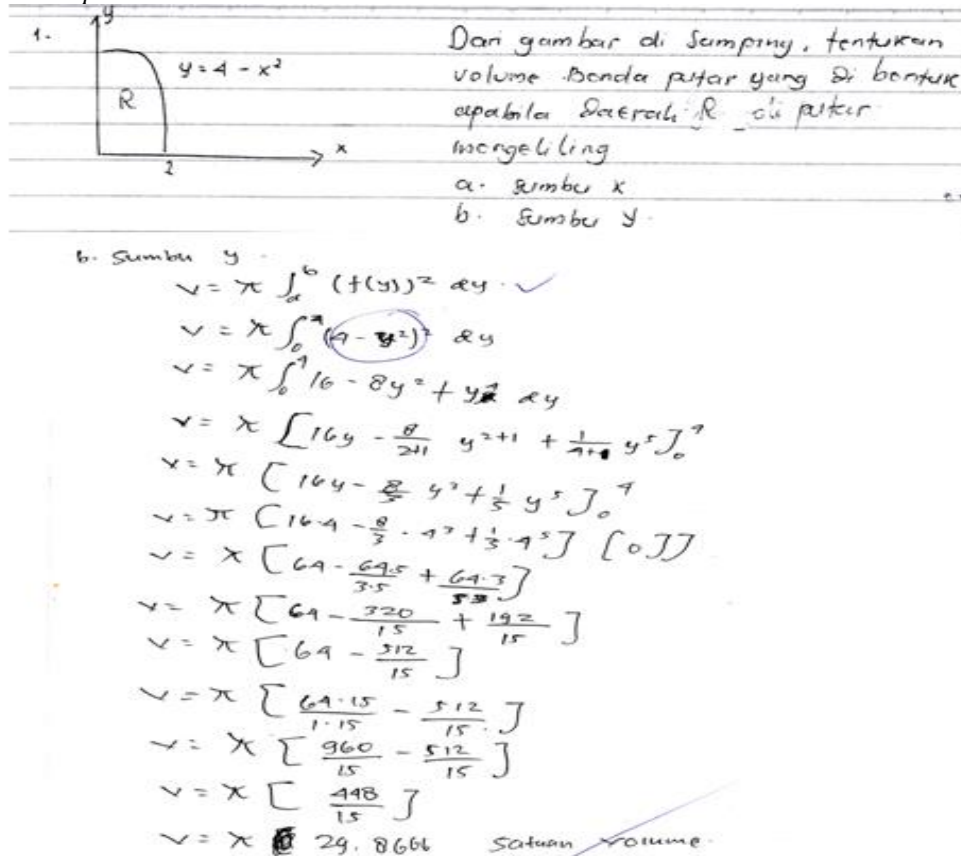 1.
y
y = 4 - x²
R
x
2
Dari gambar di samping, tentukan
volume Benda putar yang di bentuk
apabila Daerah R di putar
mengeliling
a. sumbu x
b. sumbu y.
b. Sumbu y
v = π ∫ₐᵇ (f(y))² dy ✓
v = π ∫₀⁴ (4 - y²)² dy
v = π ∫₀⁴ 16 - 8y² + y⁴ dy
v = π [16y - 8/(2+1) y²⁺¹ + 1/(4+1) y⁵]₀⁴
v = π [16y - 8/3 y³ + 1/5 y⁵]₀⁴
v = π [16·4 - 8/3 · 4³ + 1/5 · 4⁵] [0]]
v = π [64 - 64·5/3·5 + 64·3/5·3]
v = π [64 - 320/15 + 192/15]
v = π [64 - 512/15]
v = π [64·15/1·15 - 512/15]
v = π [960/15 - 512/15]
v = π [448/15]
v = π 29.8666 satuan volume.